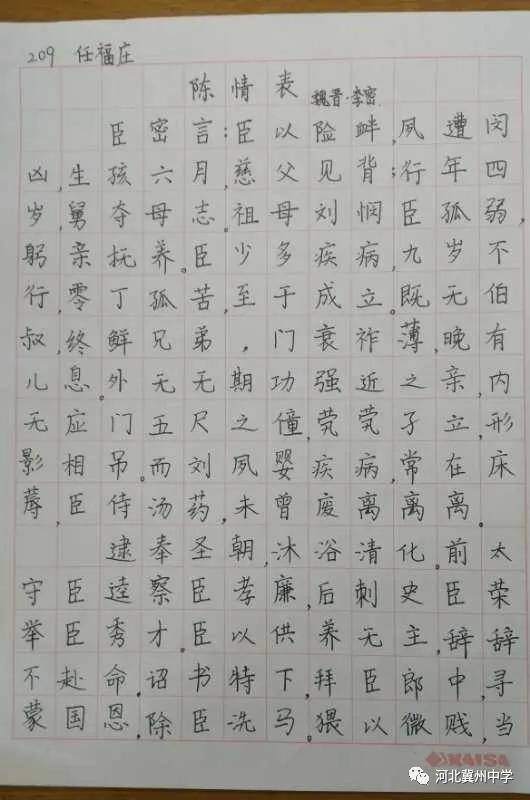 209 任福庄
陈情表
魏晋·李密
臣密言:臣以险衅,夙遭闵
凶,生孩六月,慈父见背;行年四
岁,舅夺母志。祖母刘悯臣孤弱,
躬亲抚养。臣少多疾病,九岁不
行,零丁孤苦,至于成立。既无伯
叔,终鲜兄弟,门衰祚薄,晚有
儿息。外无无期功强近之亲,内
无应门五尺之僮,茕茕孑立,形
影相吊。而刘夙婴疾病,常在床
蓐,臣侍汤药,未曾废离离离。
逮奉圣朝,沐浴清化。前太
守臣逵察臣孝廉,后刺史臣荣
举臣秀才。臣以供养无主,辞辞
不赴命。诏书特下,拜臣郎中,寻
蒙国恩,除臣洗马。猥以微贱,当
KAISA
河北冀州中学